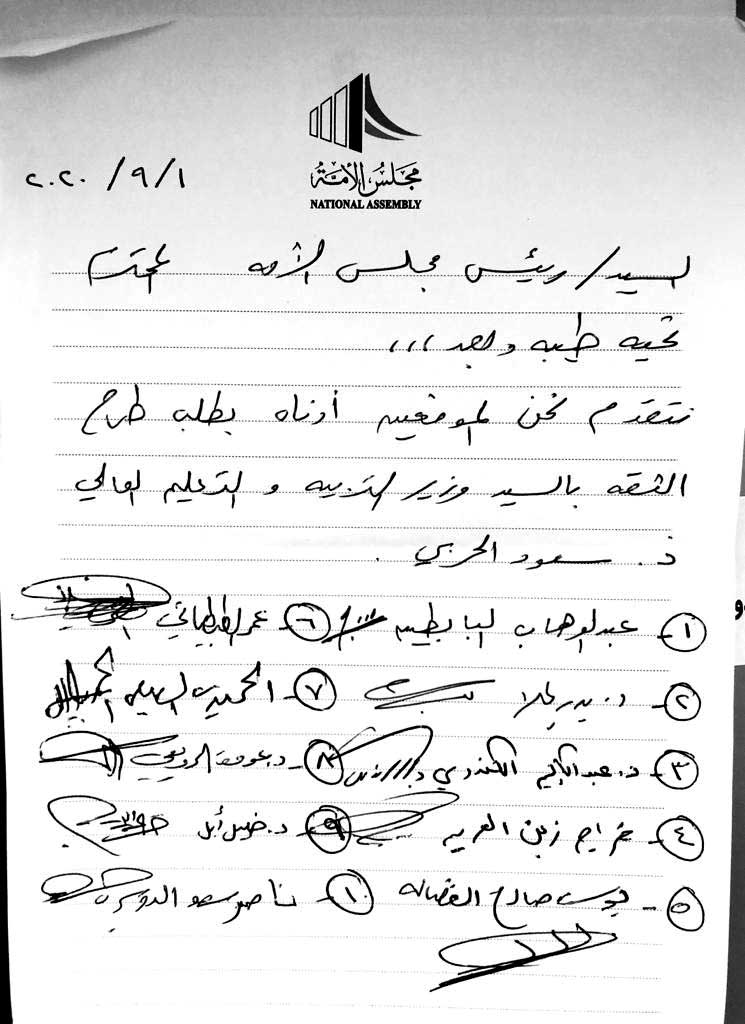 مجلس الأمة
NATIONAL ASSEMBLY
٢٠٢٠/٩/١
السيد/ رئيس مجلس الأمه المحترم
تحيه طيبه وبعد،،،
نتقدم نحن الموقعيه أدناه بطلب طرح
الثقه بالسيد وزير التربيه و التعليم العالي
د. سعود الحربي.
١- عبدالوهاب البابطين
٦- عمر الطبطبائي
٢- د. بدر الملا
٧- الحميدي السبيعي
٣- د. عبدالكريم الكندري
٨- د. عودة الرويعي
٤- فراج زبن العربيد
٩- د. خليل أبل
٥- يوسف صالح الفضاله
١٠- ناصر سعد الدوسري